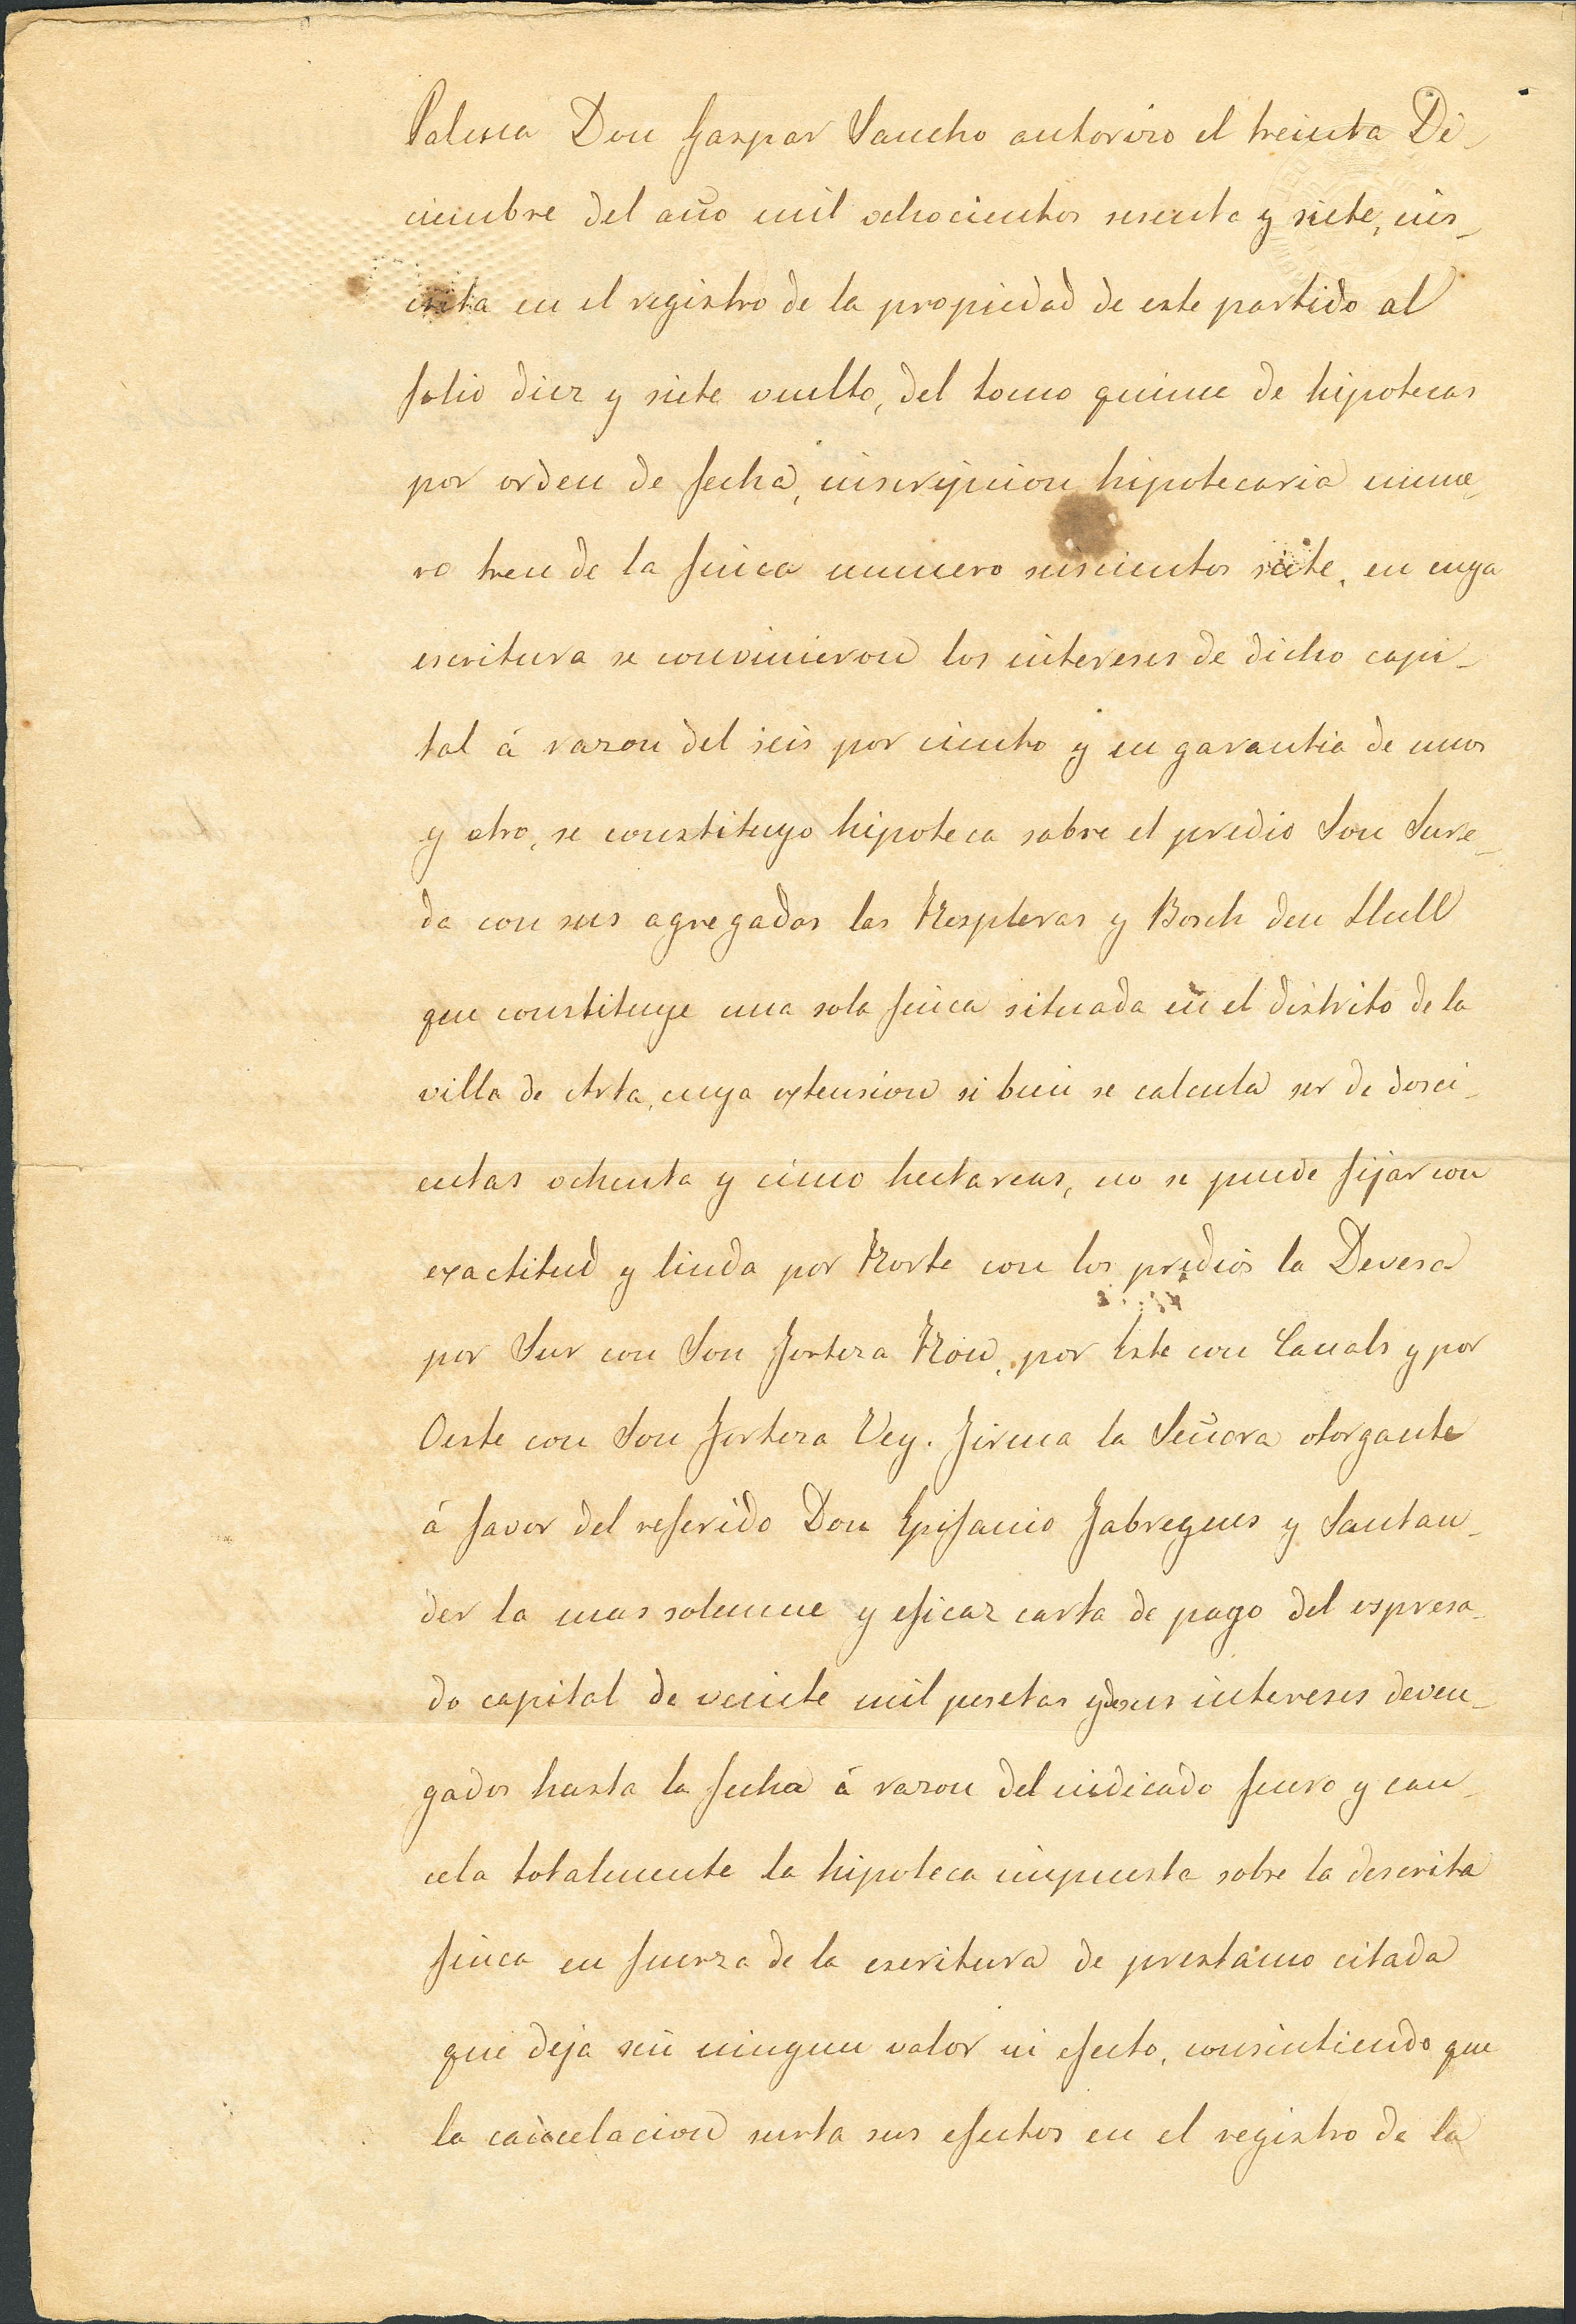 Palma Don Gaspar Sancho autorizo el treinta Di-
ciembre del año mil ochocientos sesenta y siete, ins-
crita en el registro de la propiedad de este partido al
folio diez y siete vuelto, del tomo quince de hipotecas
por orden de fecha, inscripcion hipotecaria nume-
ro tres de la finca numero seiscientos siete, en cuya
escritura se convinieron los intereses de dicho capi-
tal á razon del seis por ciento y en garantia de unos
y otro, se constituyo hipoteca sobre el predio Son Sure-
da con sus agregados las Nespleras y Bosch den Llull
que constituye una sola finca situada en el distrito de la
villa de Arta, cuya extension si bien se calcula ser de dosci-
entas ochenta y cinco hectareas, no se puede fijar con
exactitud y linda por Norte con los predios la Devesa
por Sur con Son Forteza Nou, por Este con Canals y por
Oeste con Son Forteza Vey. Firma la Señora otorgante
á favor del referido Don Epifanio Fabregues y Santan-
der la mas solemne y eficaz carta de pago del espresa-
do capital de veinte mil pesetas y de sus intereses deven-
gados hasta la fecha á razon del indicado fuero y can-
cela totalmente la hipoteca impuesta sobre la descrita
finca en fuerza de la escritura de prestamo citada
que deja sin ningun valor ni efecto, consintiendo que
la cancelacion surta sus efectos en el registro de la